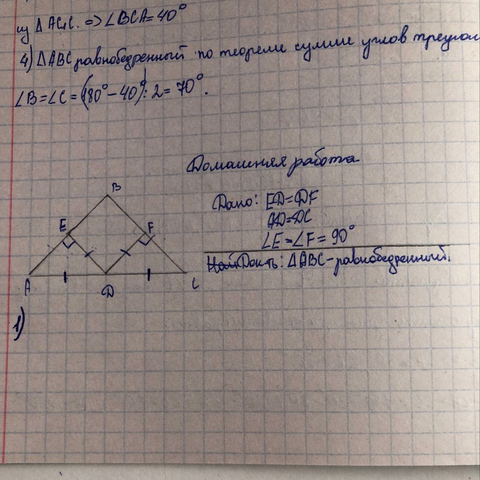 из △ACC. => ∠BCA = 40°
4) △ABC равнобедренный по теореме сумме углов треугол
∠B = ∠C = (180° - 40°) : 2 = 70°.
Домашняя работа
Дано: ED = DF
AD = DC
∠E = ∠F = 90°
Док-ть: △ABC - равнобедренный.
B
E
F
A
D
C
1)